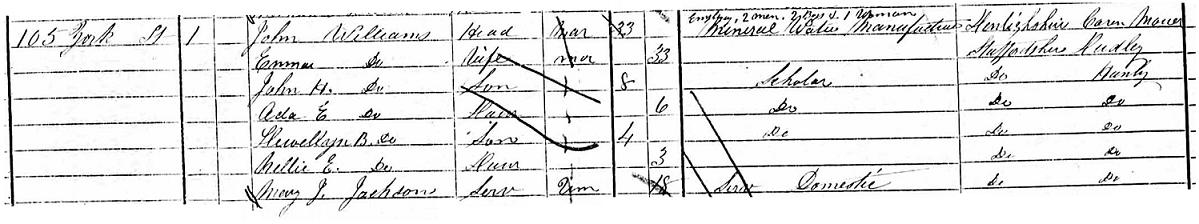 Employ 2 men, 2 Boys & 1 Woman
105 York St 1 John Williams Head Mar 33 Mineral Water Manufacturer Denbighshire
Emma Do Wife mar 33 Staffordshire
John H. Do Son 8 Scholar Do Hanley
Ada E Do Daur 6 Do Do Do
Llewellyn B. Do Son 4 Do Do Do
Nellie E. Do Daur 3 Do Do
Mary J. Jackson Serv Unm 18 Serv Domestic Do Do